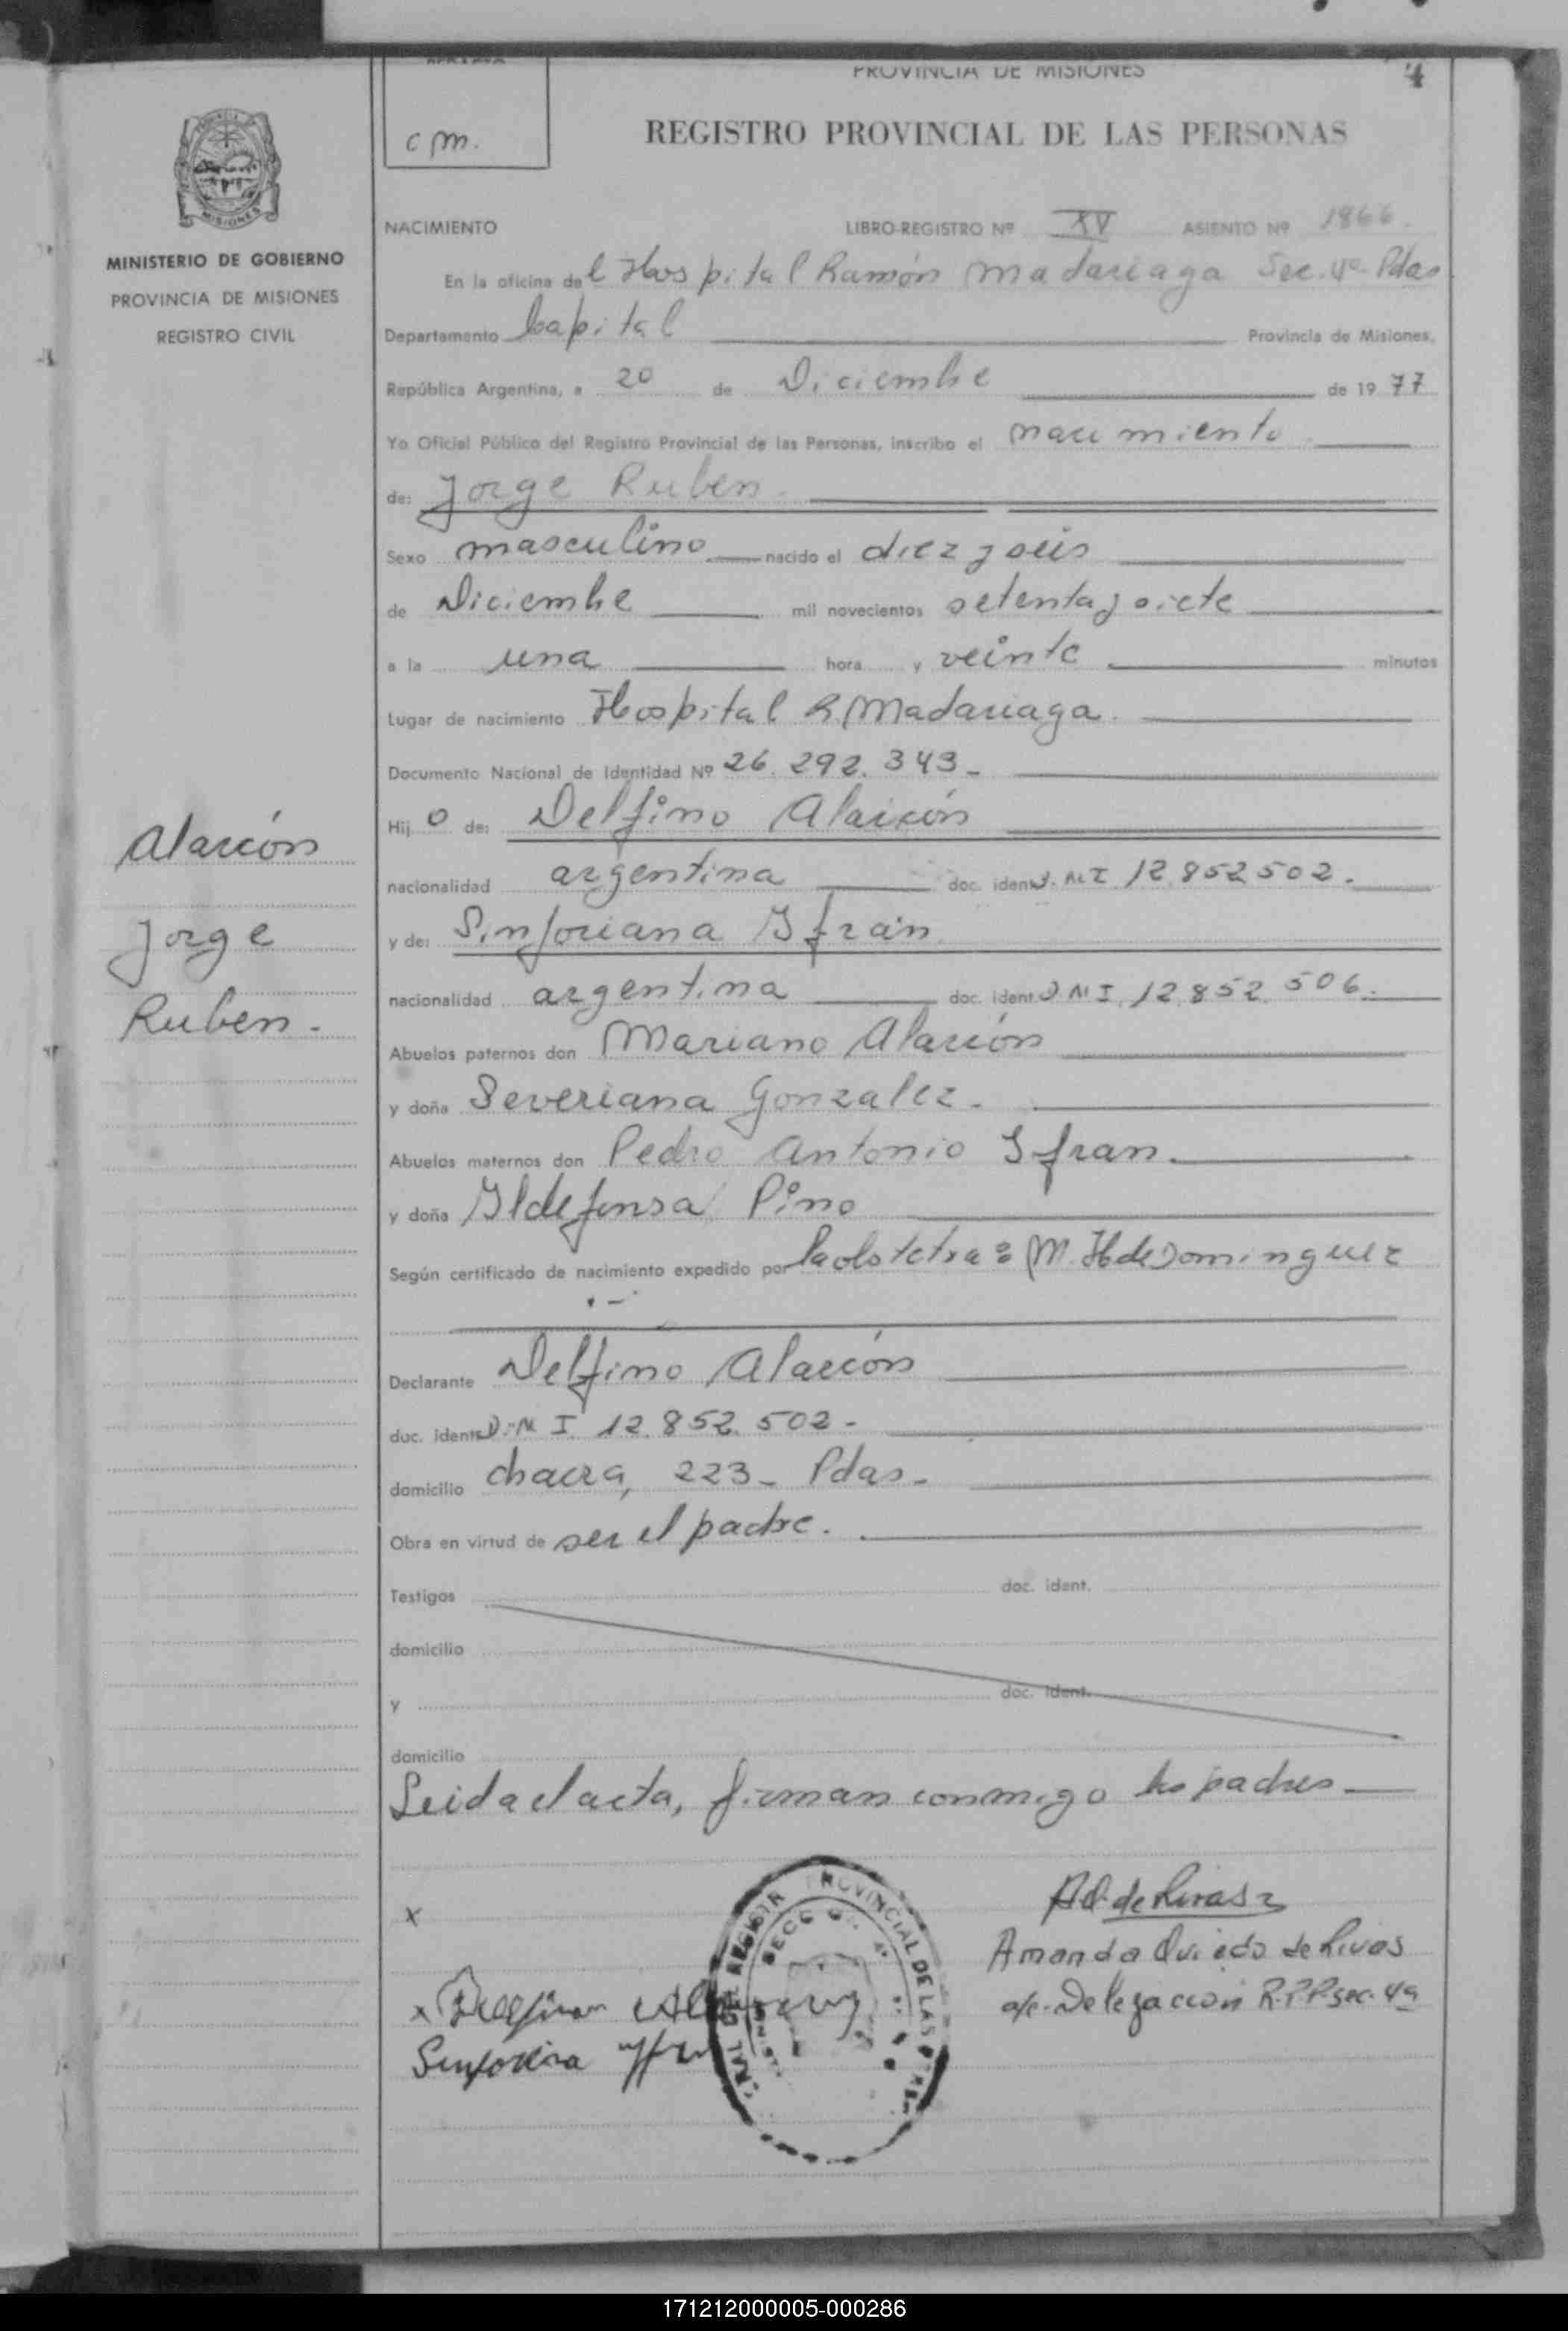 PROVINCIA DE MISIONES
4
c m.
REGISTRO PROVINCIAL DE LAS PERSONAS
MISIONES
MINISTERIO DE GOBIERNO
PROVINCIA DE MISIONES
REGISTRO CIVIL
Alarcón
Jorge
Ruben.-
NACIMIENTO LIBRO-REGISTRO Nº XV ASIENTO Nº 1866.
En la oficina del Hospital Ramón Madariaga Sec. 4ª. Pdas
Departamento Capital Provincia de Misiones,
República Argentina, a 20 de Diciembre de 1977
Yo Oficial Público del Registro Provincial de las Personas, inscribo el nacimiento
de: Jorge Ruben.-
Sexo masculino nacido el diez y seis
de Diciembre mil novecientos setenta y siete
a la una hora y veinte minutos
Lugar de nacimiento Hospital R. Madariaga.
Documento Nacional de Identidad Nº 26.292.343-
Hijo de: Delfino Alarcón
nacionalidad argentina doc. ident. D.N.I 12.852502.
y de: Sinforiana Ifran
nacionalidad argentina doc. ident. D N I. 12.852.506.
Abuelos paternos don Mariano Alarcón
y doña Severiana Gonzalez.-
Abuelos maternos don Pedro Antonio Ifran.
y doña Ildefonsa Pino
Según certificado de nacimiento expedido por la obstetra: M. H de Dominguez
Declarante Delfino Alarcón
doc. ident. D.N I. 12.852.502-
domicilio chacra, 223- Pdas.-
Obra en virtud de ser el padre.
Testigos doc. ident.
domicilio
y doc. ident.
domicilio
Leida el acta, firman conmigo los padres
x
x
Amanda Oviedo de Rivas
a/c. Delegación R.P.P. sec. 4ª
PROVINCIAL DE LAS
171212000005-000286